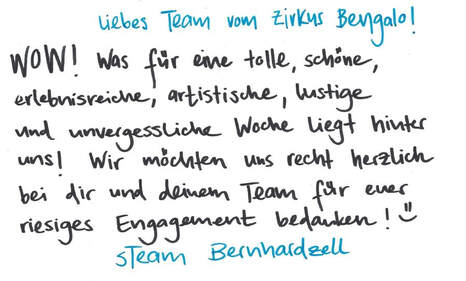 Liebes Team vom Zirkus Bengalo!
WOW! Was für eine tolle, schöne,
erlebnisreiche, artistische, lustige
und unvergessliche Woche liegt hinter
uns! Wir möchten uns recht herzlich
bei dir und deinem Team für euer
riesiges Engagement bedanken! ☺
sTeam Bernhardzell